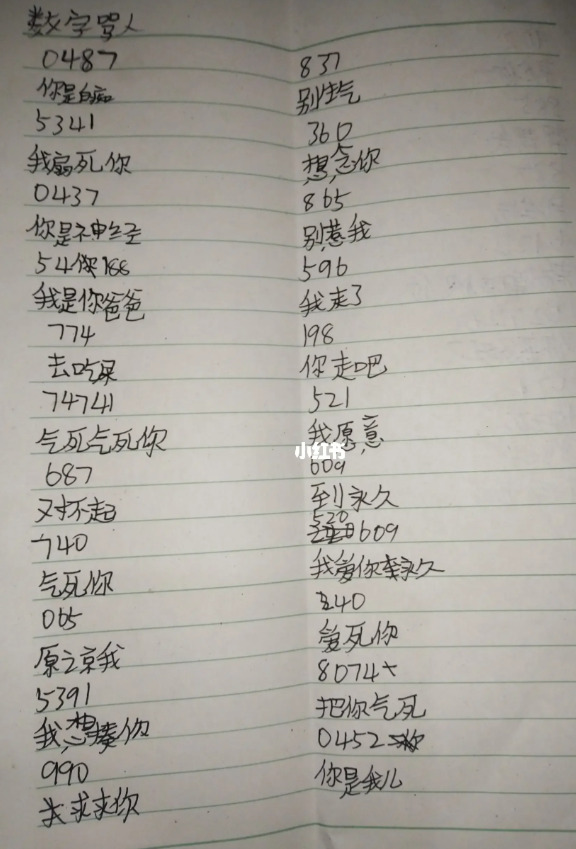 数字骂人
0487
你是白痴
5341
我扇死你
0437
你是神经
54你188
我是你爸爸
774
去吃屎
74741
气死气死你
687
对不起
740
气死你
065
原谅我
5391
我想揍你
990
求求你
837
别生气
360
想念你
865
别惹我
596
我走了
198
你走吧
521
我愿意
小红书
609
到永久
520
609
我爱你永久
240
爱死你
8074
把你气死
0452
你是我儿